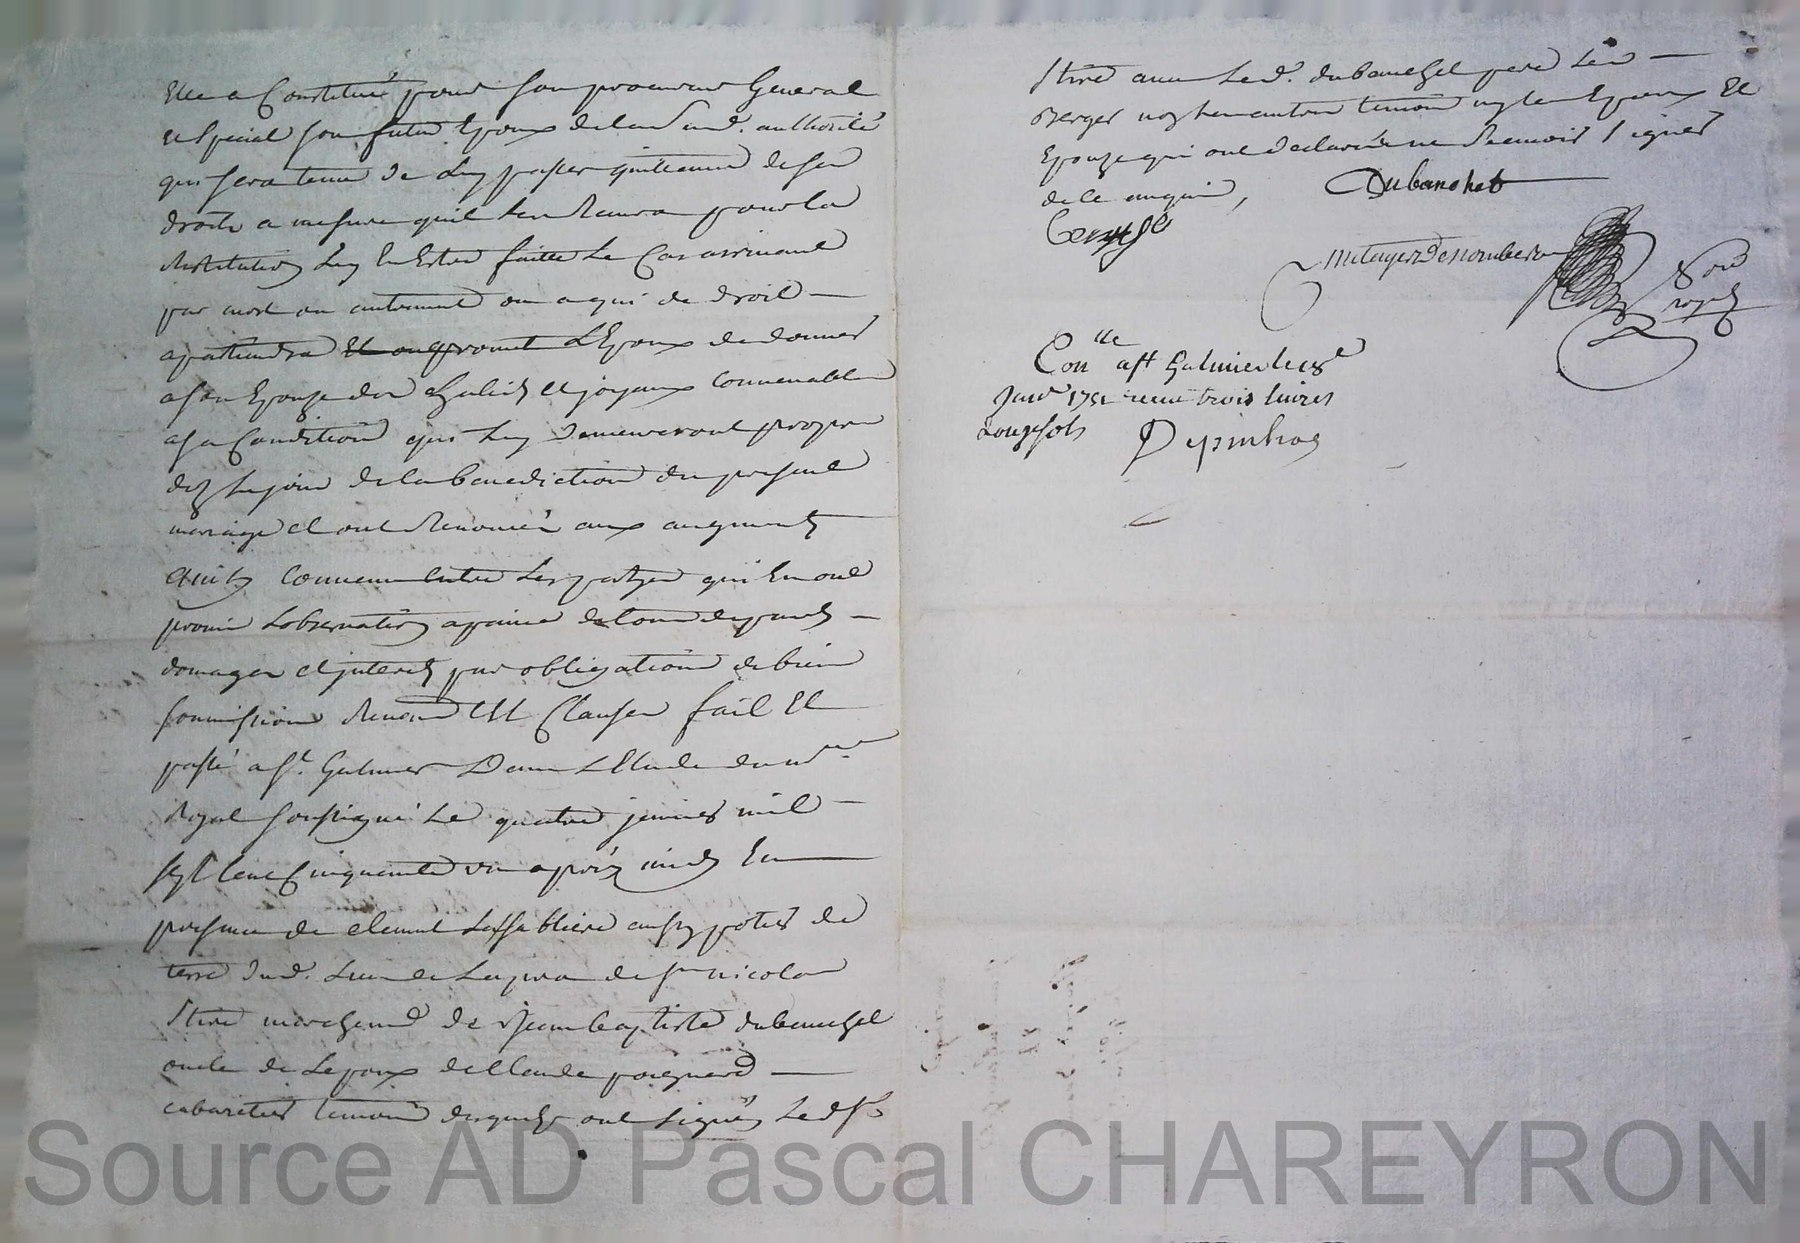 Elle a Constitué pour son procureur General
et special son futur Epoux de la sus d. authorité
qui sera tenu de luy passer quittance de ses
droits a mesure quil les recevra pour la
restitution luy en Estre faitte le Cas arrivant
par mort ou autrement ou a qui de droit
apartiendra Et ou promet L'Epoux de donner
a son Epouze des habits et joyaux Convenables
a sa Condition qui luy demeureront propres
dez le jour de la benediction du present
mariage et ont Renoncés aux augments
Ainsy Convenu entre les partyes qui En ont
promis Lobservation a peine de tous depends
domages et jnterets par obligation de biens
soumissions Renond et Clauses fait Et
passé a St. Galmier Dans L'Etude du no.re
Royal soussigné Le quatre janvier mil
sept Cent Cinquante un après midy En
presence de Clement Lassabliere aussy potier de
terre dud. lieu de
Stire marchand de sr jean baptiste dubanchet
oncle de Lepoux de Claude poignard
cabaretier temoins lesquels ont signés Led. sr
Stire avec Le d. dubanchet pere Les
Berger non L'autre temoin ny les Epoux Et
Epouze qui ont declarés ne Scavoir signer
de ce enquis,
Dubanchet
metayer Desombe
No.re
royal
Con.lle a st Galmier le 18e
Janv.r 1751 receu trois livres
douze sols
Depinhac
Source AD Pascal CHAREYRON